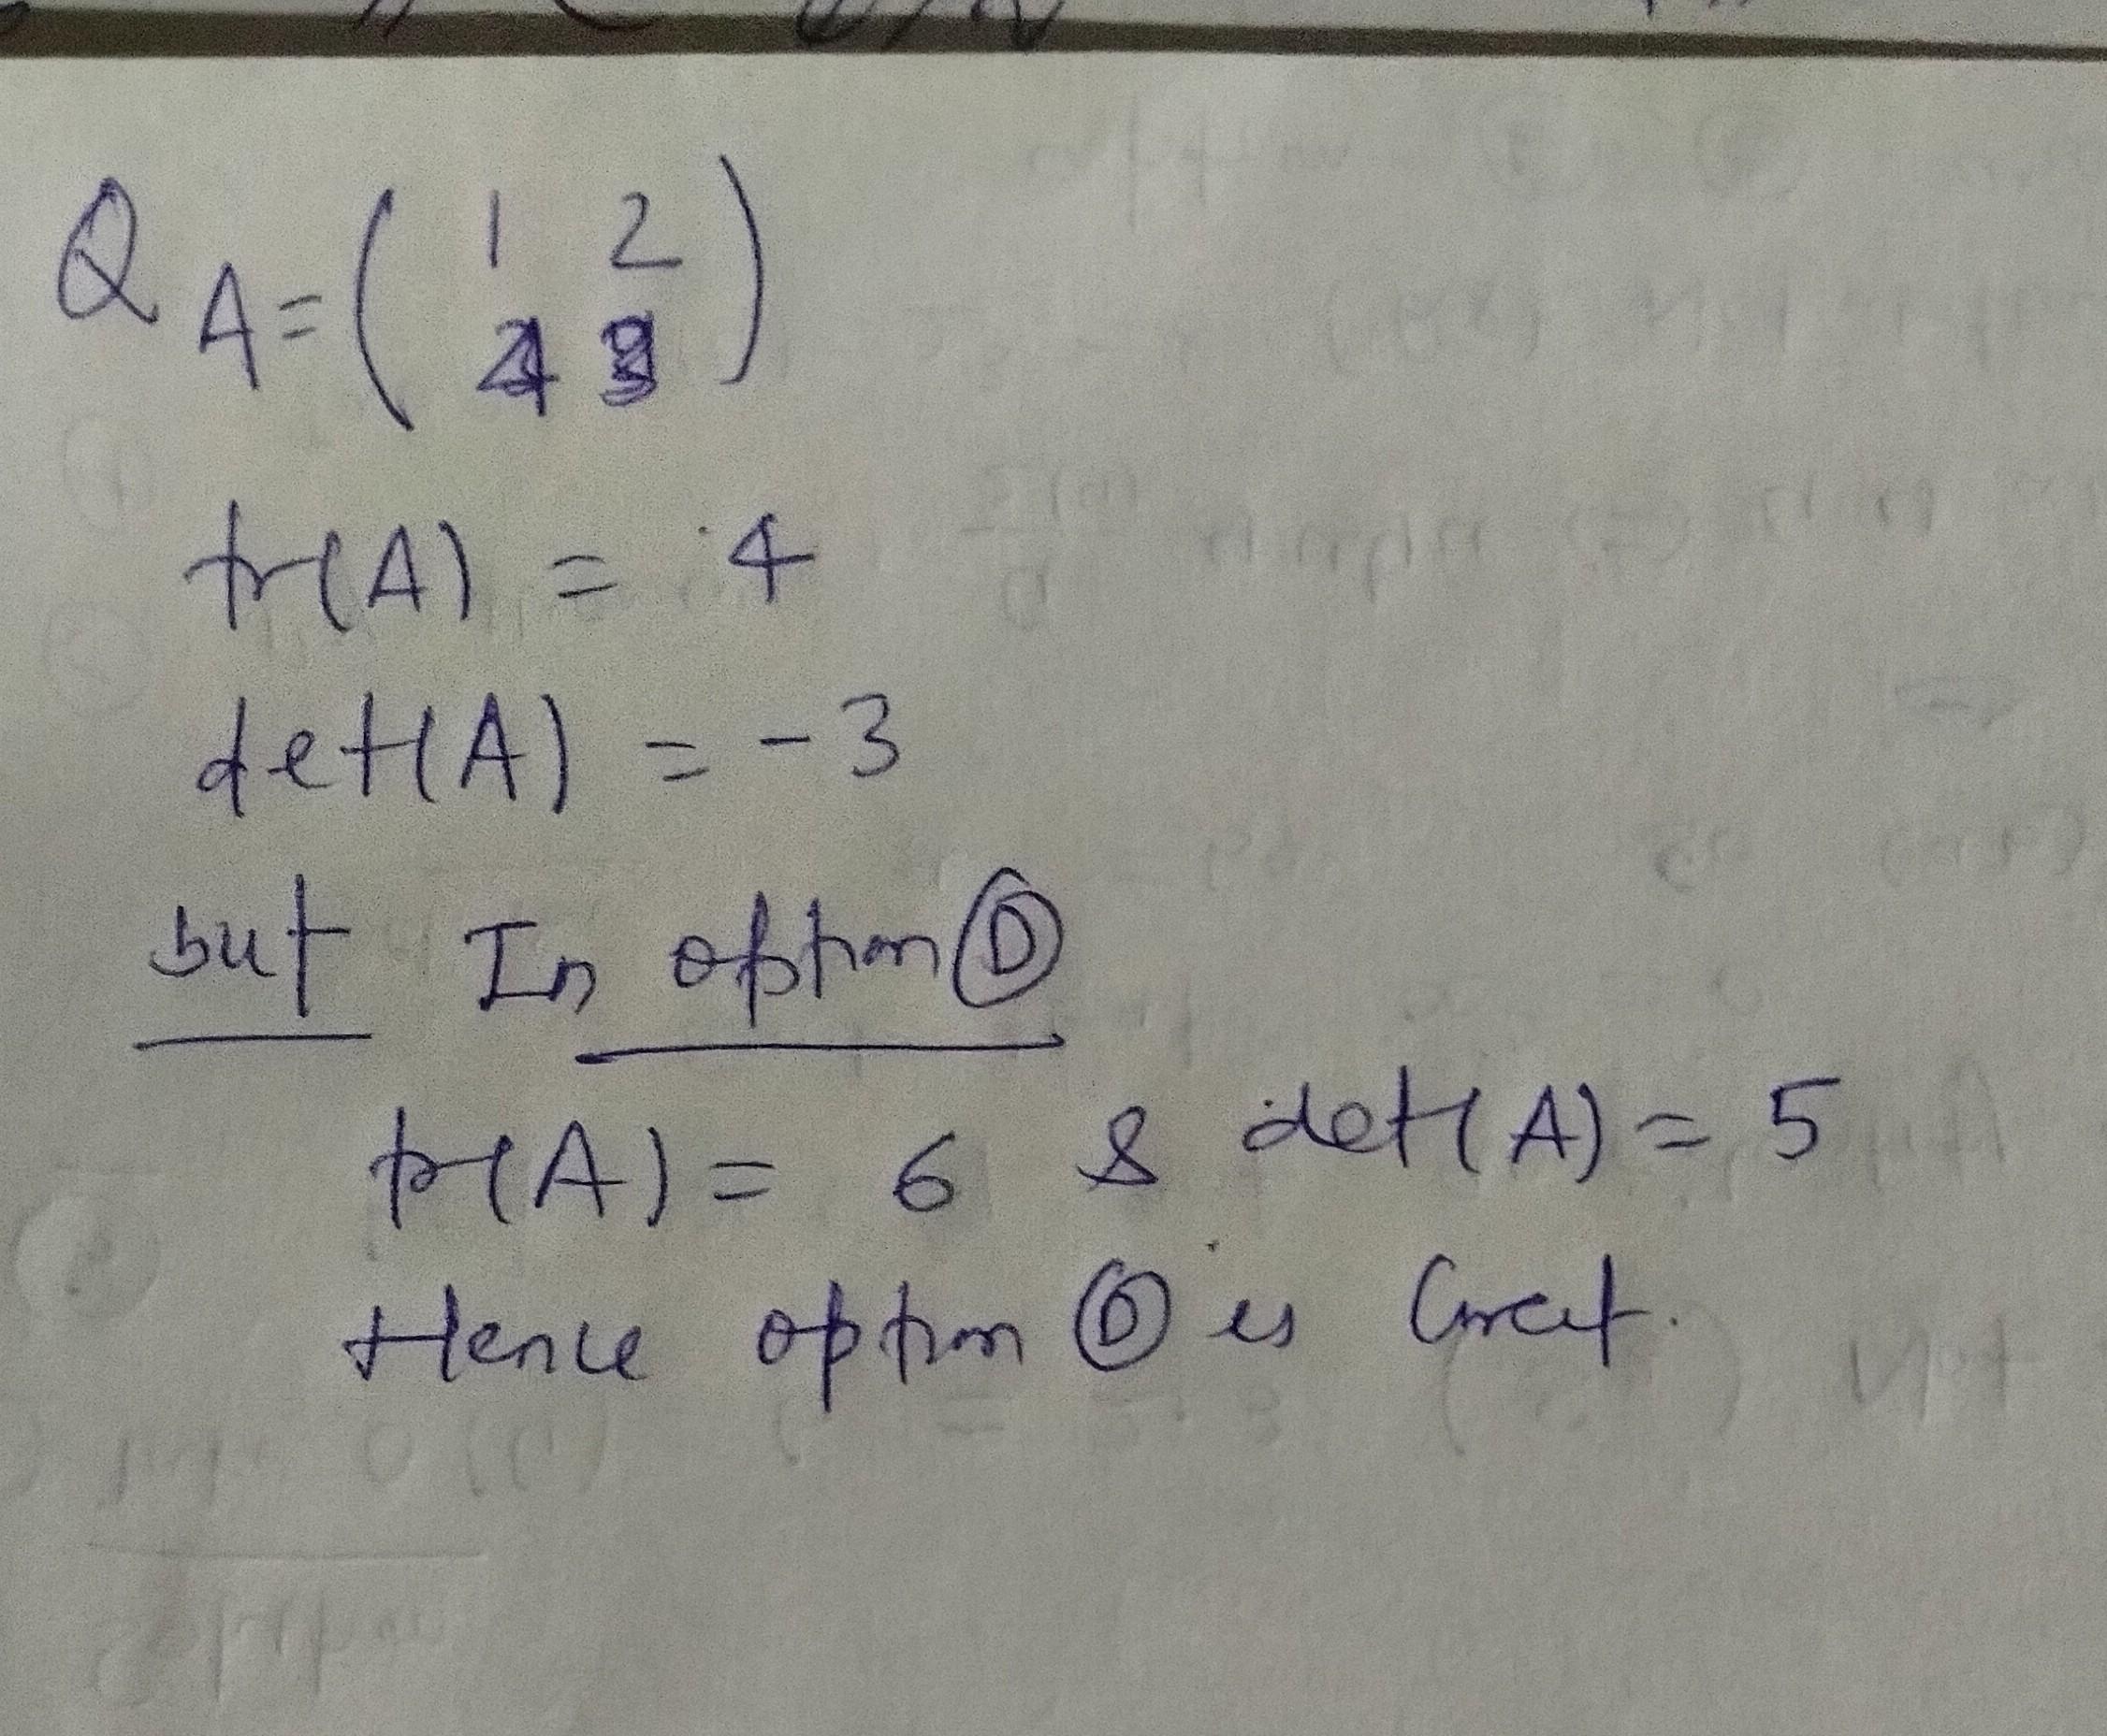 Q A = ( 1 2
4 3 )
tr(A) = 4
det(A) = -3
but In option (D)
tr(A) = 6 & det(A) = 5
Hence option (D) is Correct.